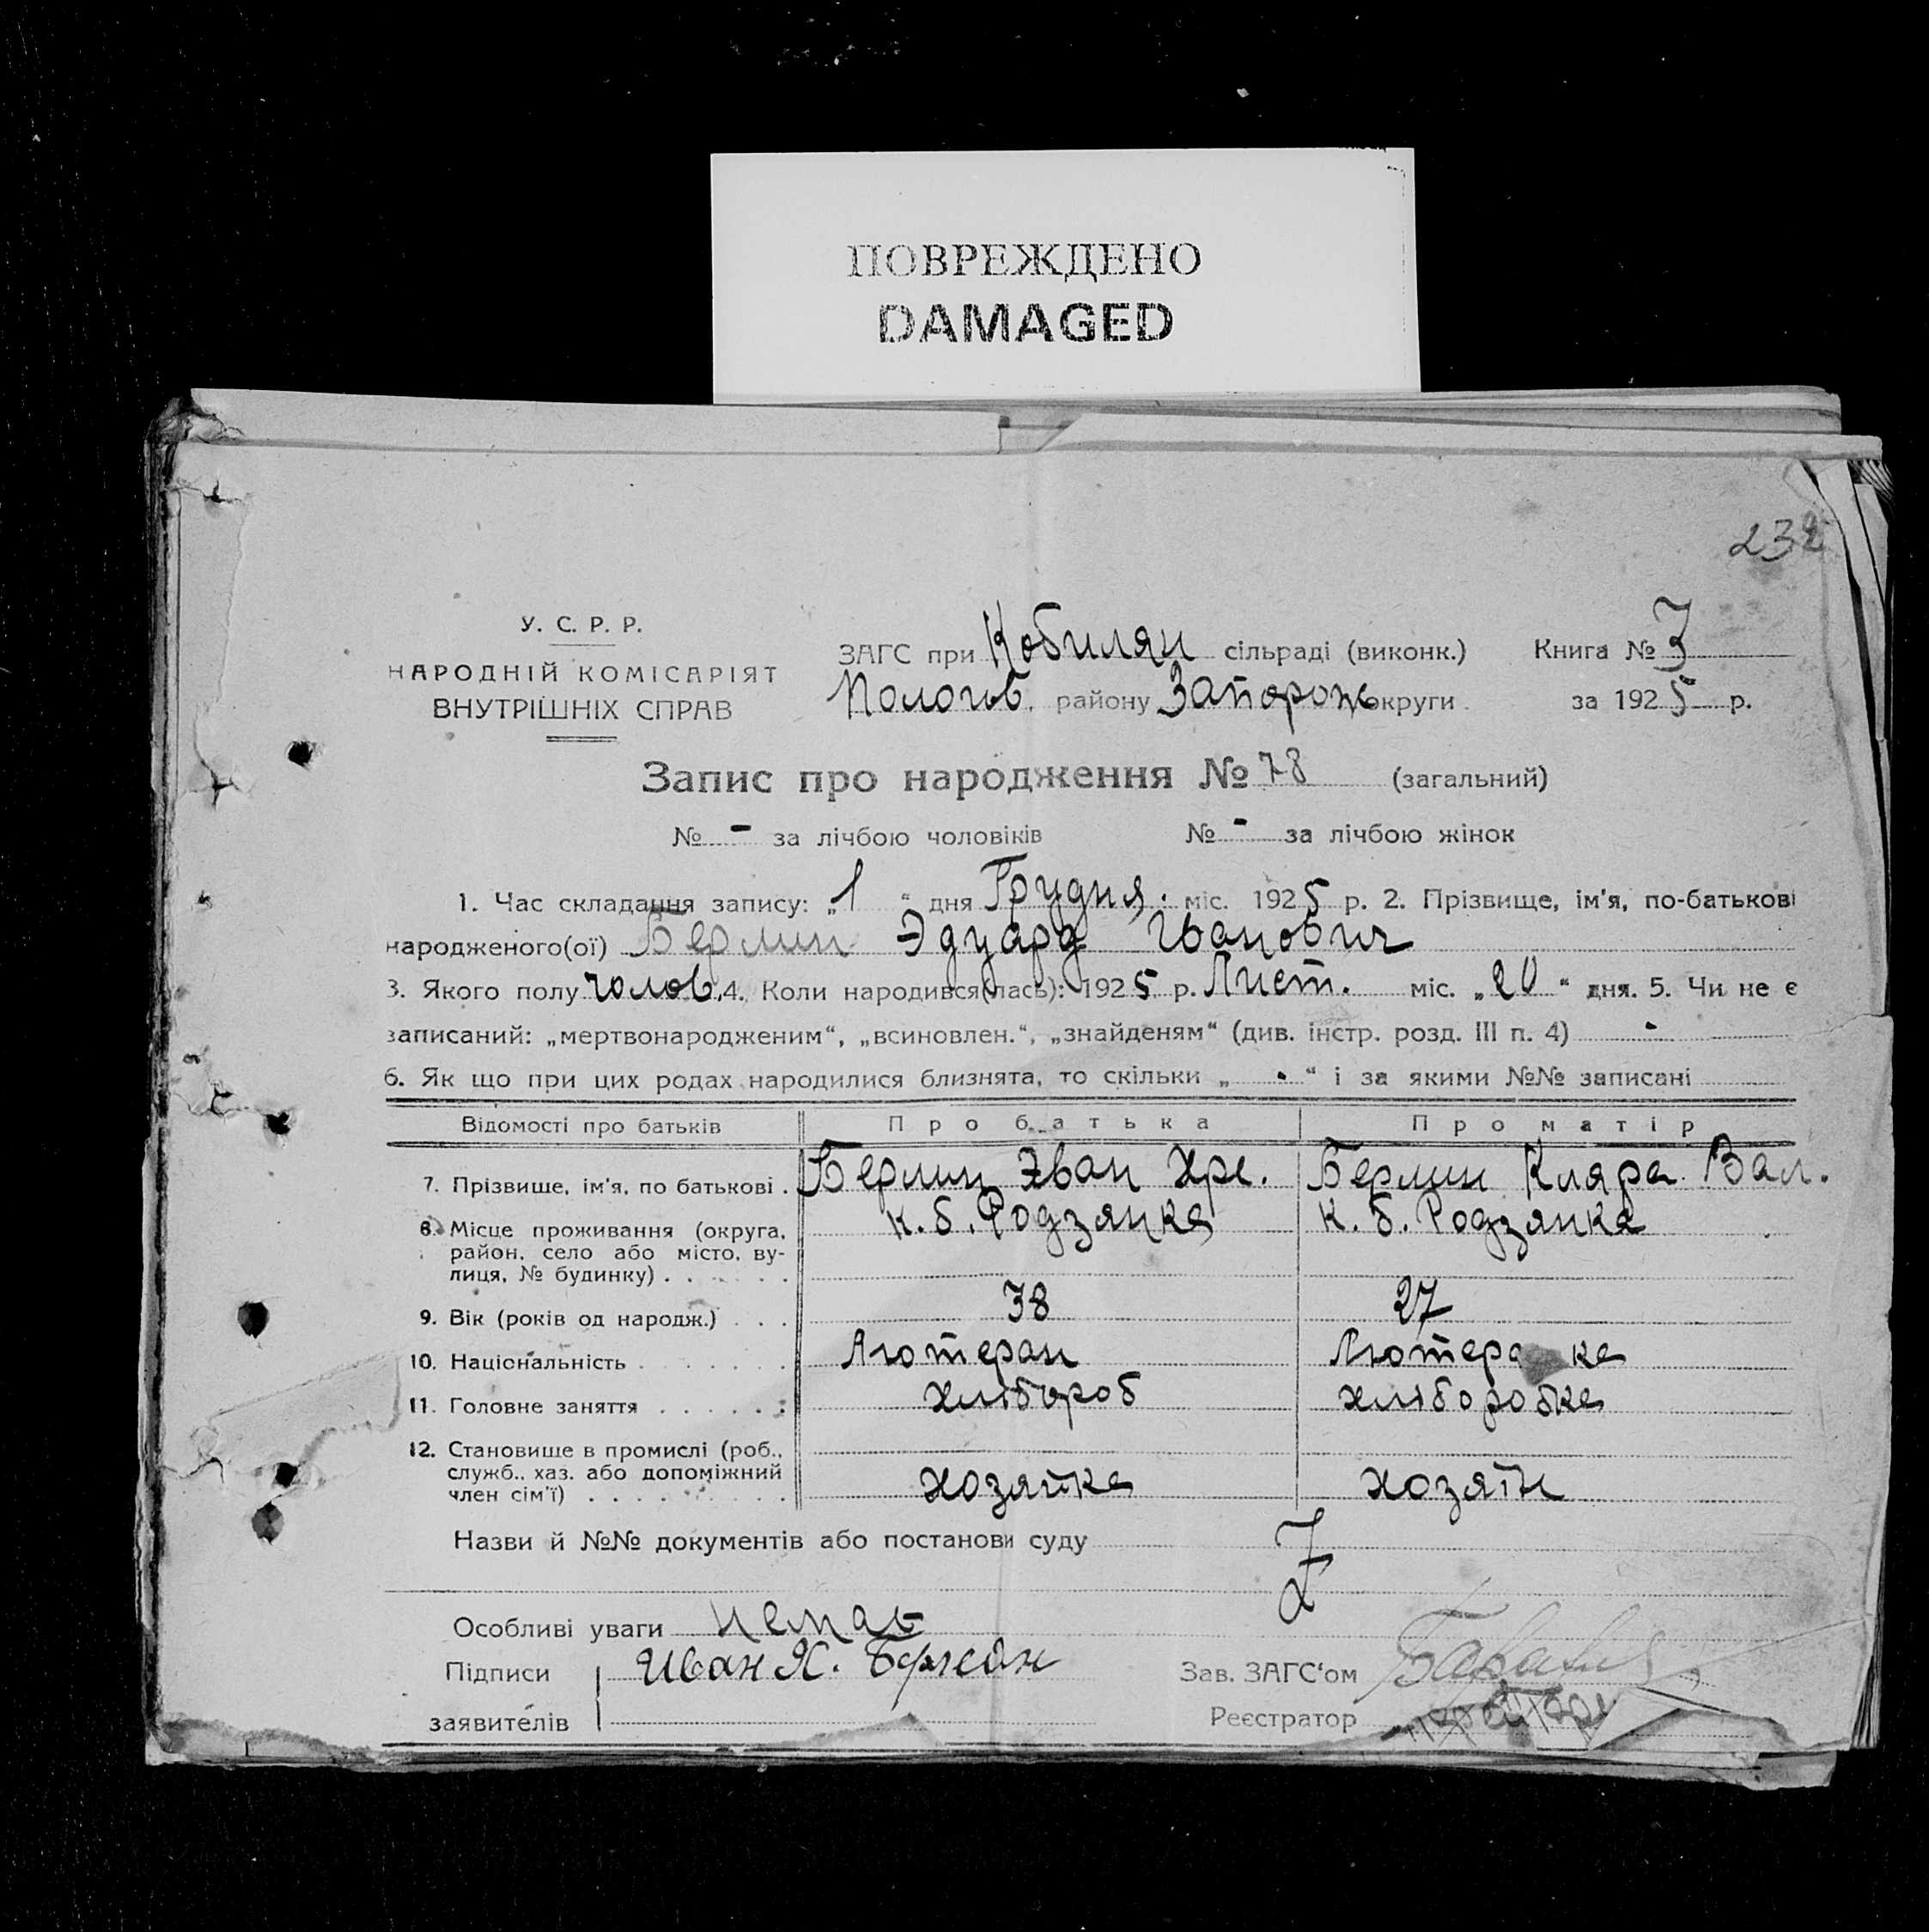 ПОВРЕЖДЕНО
DAMAGED
232
У. С. Р. Р.
НАРОДНІЙ КОМІСАРІЯТ
ВНУТРІШНІХ СПРАВ
ЗАГС при Кобилян сільраді (виконк.) Книга № 3
Пологов. району Запорожь округи за 1925 р.
Запис про народження № 78 (загальний)
№ - за лічбою чоловіків № - за лічбою жінок
1. Час складання запису: „1“ дня Грудня. міс. 1925 р. 2. Прізвище, ім'я, по-батькові
народженого(ої) Берлин Эдуард Іванович
3. Якого полу чолов. 4. Коли народився(лась): 1925 р. Лист. міс. „20“ дня. 5. Чи не є
записаний: „мертвонародженим“, „всиновлен.“, „знайденям“ (див. інстр. розд. III п. 4) -
6. Як що при цих родах народилися близнята, то скільки „ - “ і за якими №№ записані
Відомості про батьків Про батька Про матір
7. Прізвище, ім'я, по батькові . Берлин Эван Хре. Берлин Кляра Вал.
8. Місце проживання (округа, к. б. Родзянка к. б. Родзянка
район, село або місто, ву-
лиця, № будинку) . . . . . .
9. Вік (років од народж.) . . . 38 27
10. Національність . . . . . . . Лютеран Лютера ка
11. Головне заняття . . . . . . хлібороб хліборобка
12. Становище в промислі (роб.,
служб., хаз. або допоміжний
член сім'ї) . . . . . . . . . хозяйка хозяїн
Назви й №№ документів або постанови суду
Особливі уваги немає
Підписи Иван Х. Берлин Зав. ЗАГС‘ом
заявителів Реєстратор